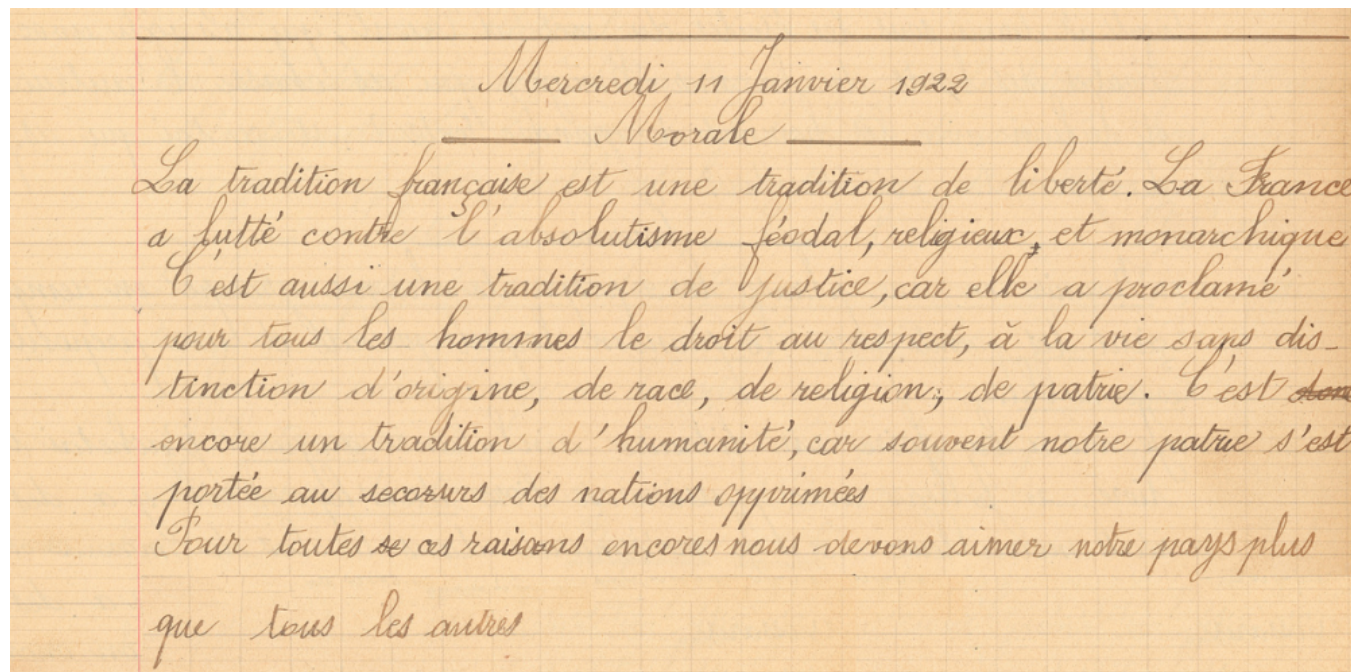 Mercredi 11 Janvier 1922
Morale
La tradition française est une tradition de liberté. La France
a lutté contre l'absolutisme féodal, religieux, et monarchique
C'est aussi une tradition de justice, car elle a proclamé
pour tous les hommes le droit au respect, à la vie sans dis-
tinction d'origine, de race, de religion, de patrie. C'est donc
encore un tradition d'humanité, car souvent notre patrie s'est
portée au secours des nations opprimées
Pour toutes se ces raisons encores nous devons aimer notre pays plus
que tous les autres